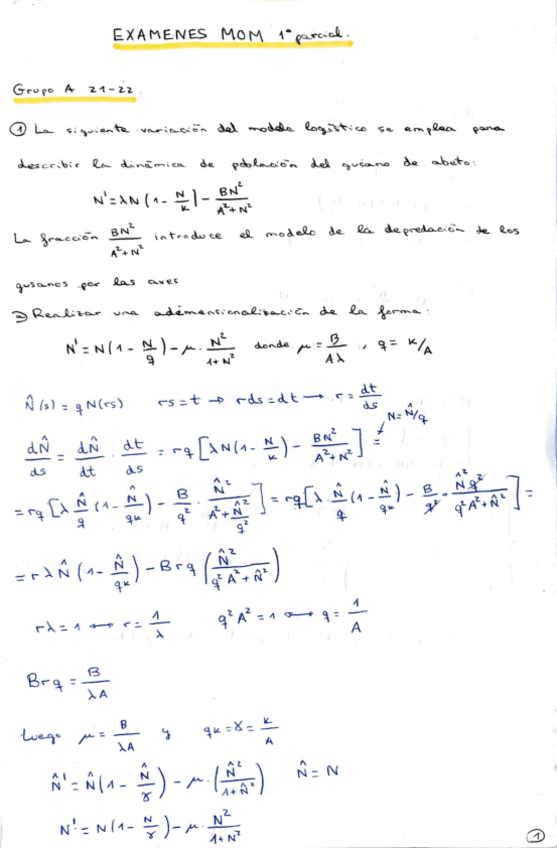 EXAMENES MOM 1º parcial.
Grupo A 21-22
① La siguiente variación del modelo logístico se emplea para
describir la dinámica de población del gusano de abeto:
N' = λN (1 - N/K) - BN²/(A²+N²)
La fracción BN²/(A²+N²) introduce el modelo de la depredación de los
gusanos por las aves
a) Realizar una adimensionalización de la forma:
N' = N(1 - N/q) - μ · N²/(1+N²) donde μ = B/(Aλ), q = K/A
N̂(s) = q N(rs) rs = t → r ds = dt → r = dt/ds
N = N̂/q
dN̂/ds = dN̂/dt · dt/ds = rq [λN(1 - N/K) - BN²/(A²+N²)] =
= rq [λ N̂/q (1 - N̂/(qK)) - B/q² · N̂²/(A² + N̂²/q²)] = rq [λ · N̂/q (1 - N̂/(qK)) - B/q² · N̂²q²/(q²A²+N̂²)] =
= rλN̂ (1 - N̂/(qK)) - Brq (N̂²/(q²A² + N̂²))
rλ = 1 ↔ r = 1/λ q²A² = 1 ↔ q = 1/A
Brq = B/(λA)
Luego μ = B/(λA) y qK = γ = K/A
N̂' = N̂(1 - N̂/γ) - μ · (N̂²/(1+N̂²)) N̂ = N
N' = N(1 - N/γ) - μ · N²/(1+N²)
①